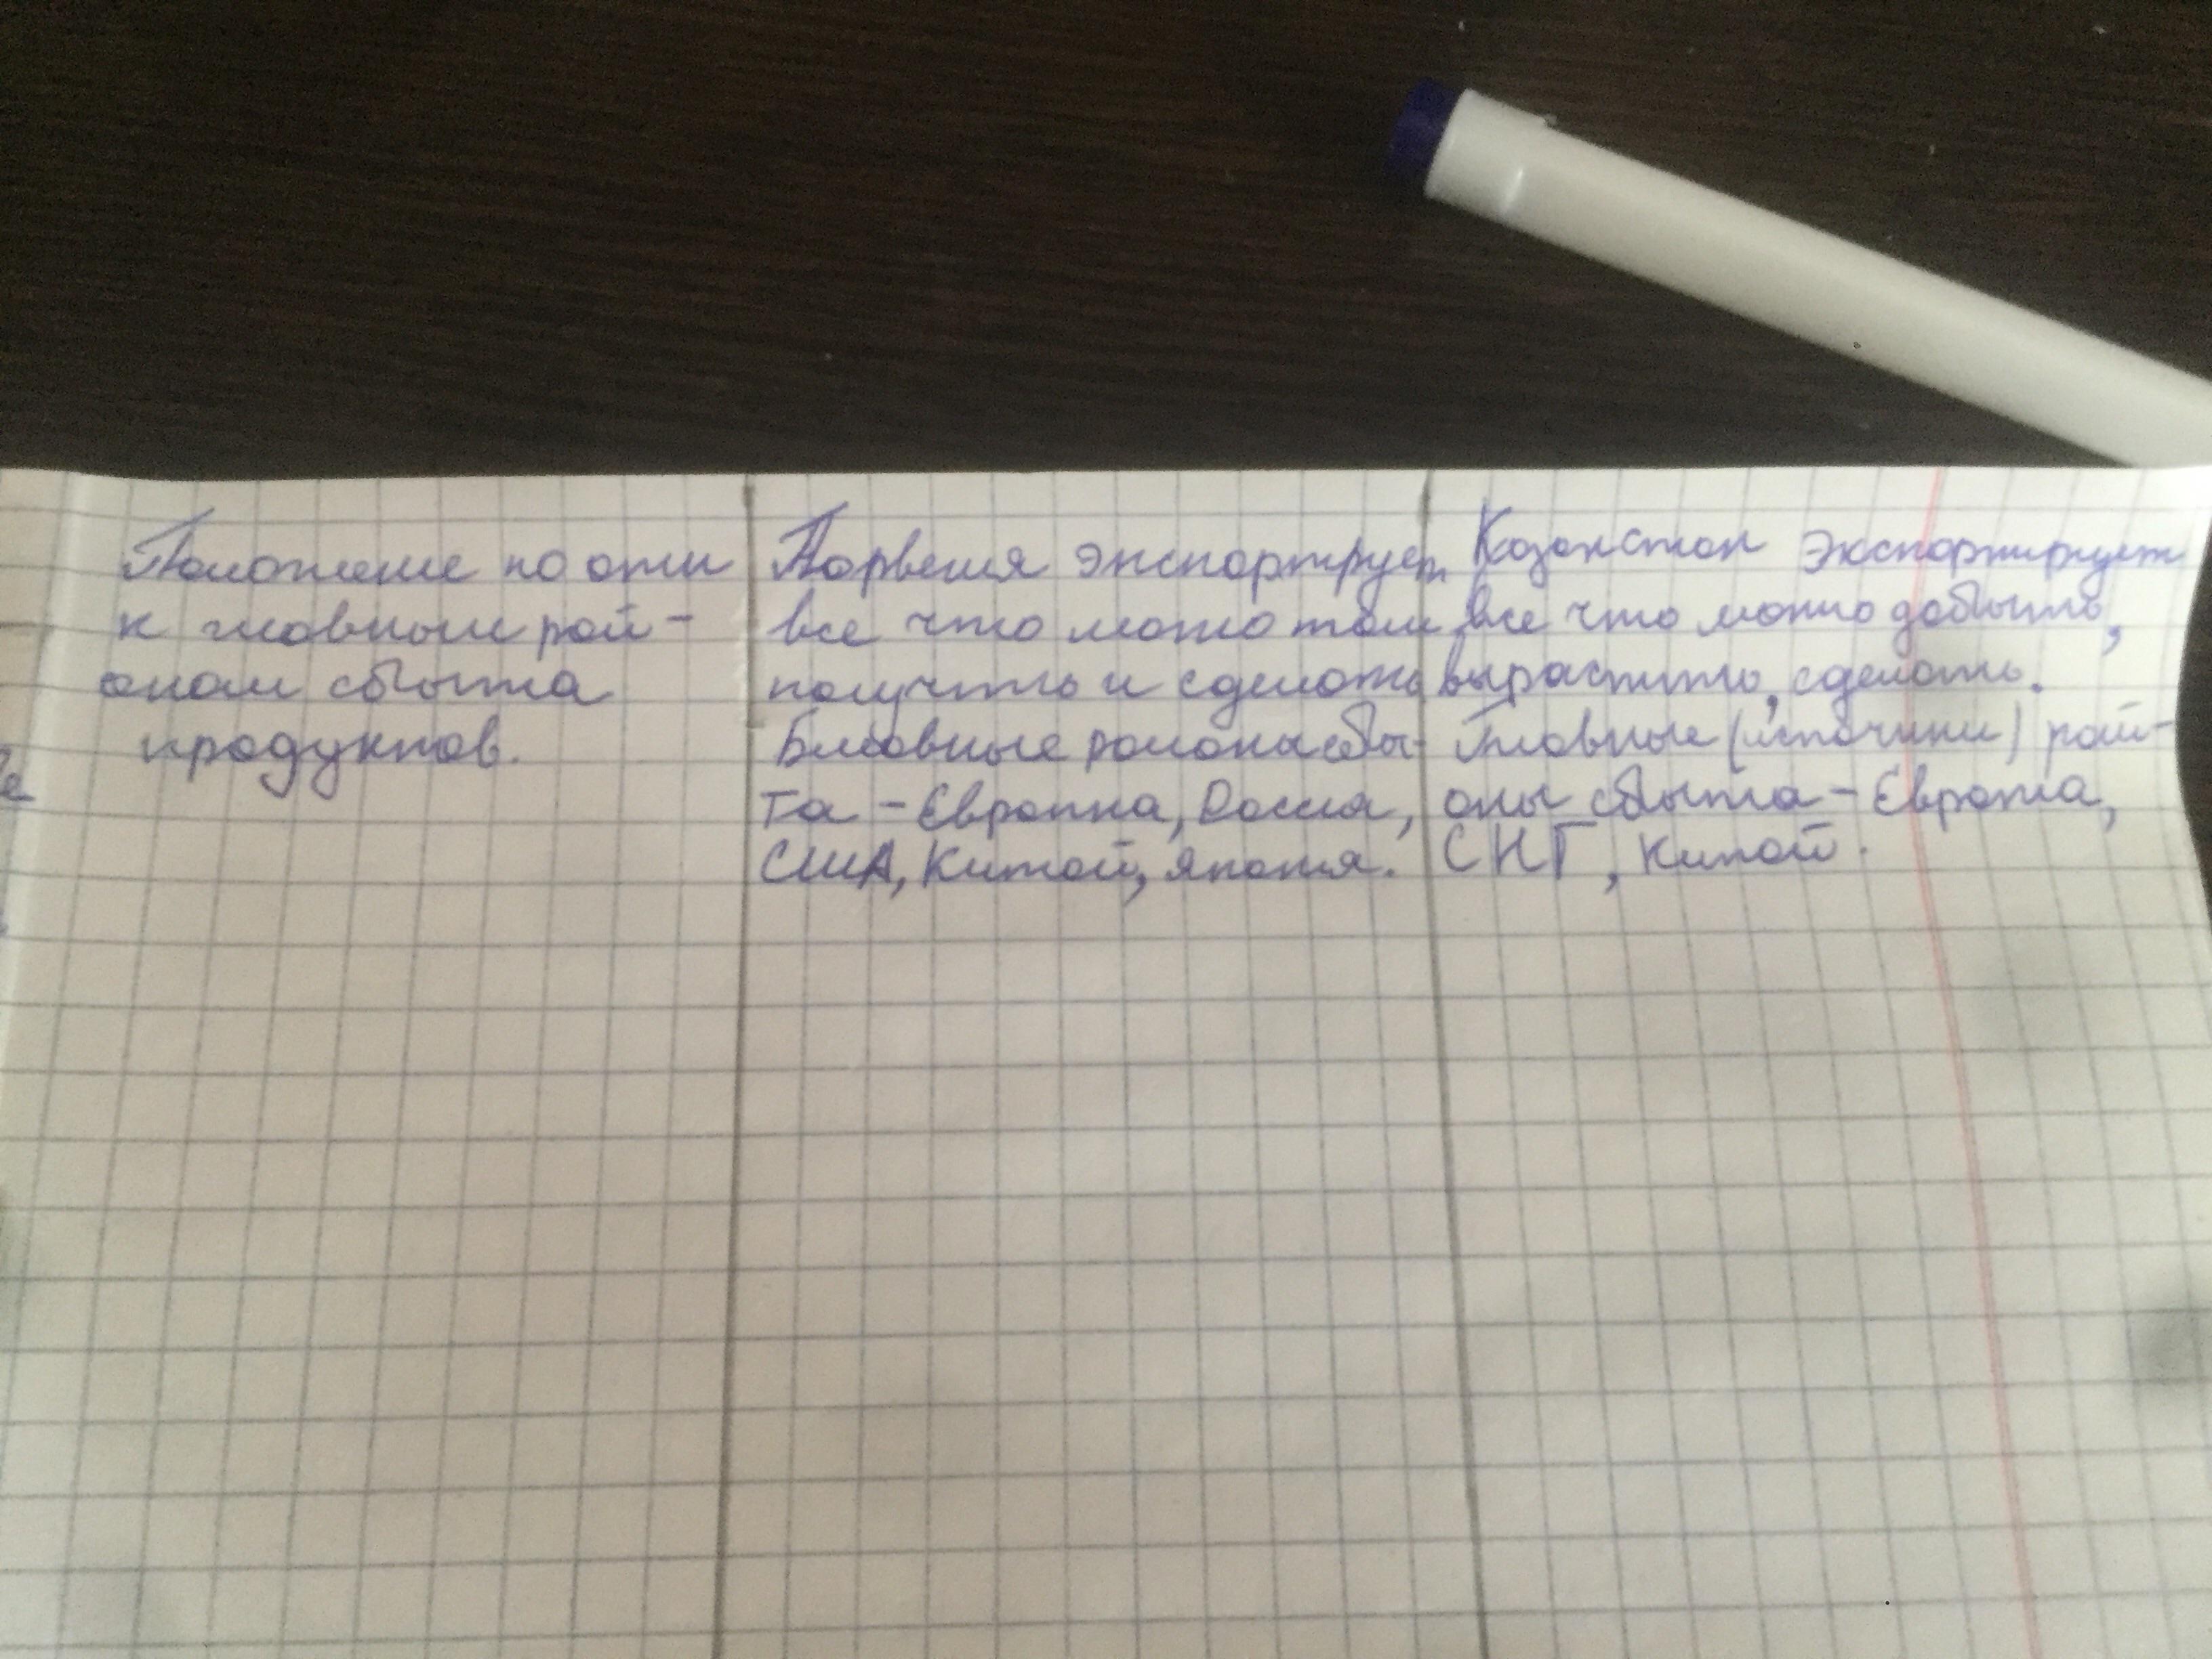 Положение по отн
к главным рай-
онам сбыта
продуктов.
Норвегия экспортирует
все что можно там
получить и сделать
Главные районы сбы-
та - Европпа, Россия,
США, Китай, Япония.
Казахстан экспортирует
все что можно добыть,
вырастить, сделать.
Главные (источники) рай-
оны сбыта - Европа,
СНГ, Китай.